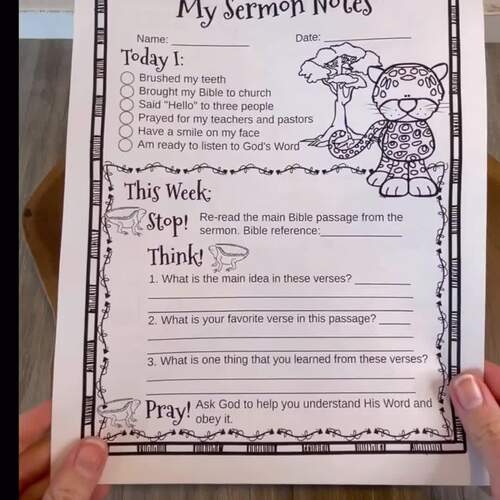 My Sermon Notes
Name: ____________ Date: ____________
Today I:
Brushed my teeth
Brought my Bible to church
Said "Hello" to three people
Prayed for my teachers and pastors
Have a smile on my face
Am ready to listen to God's Word
This Week:
Stop! Re-read the main Bible passage from the
sermon. Bible reference:____________
Think!
1. What is the main idea in these verses? ________
2. What is your favorite verse in this passage? _____
3. What is one thing that you learned from these verses?
Pray! Ask God to help you understand His Word and
obey it.